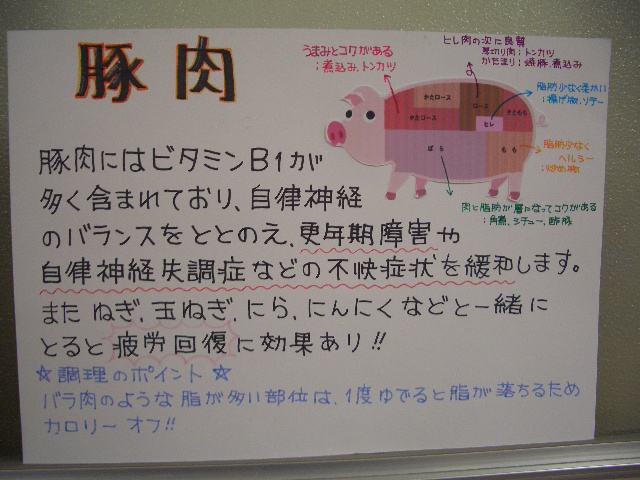 豚肉
うまみとコクがある
:煮込み、トンカツ
ヒレ肉の次に良質
厚切り肉:トンカツ
かたまり:焼豚、煮込み
脂肪少なく柔かい
:揚げ物、ソテー
かたロース
かたロース
ロース
ヒレ
そともも
ばら
もも
脂肪少なく
ヘルシー
:炒め物
肉と脂肪が層になってコクがある
:角煮、シチュー、酢豚
豚肉にはビタミンB1が
多く含まれており、自律神経
のバランスをととのえ、更年期障害や
自律神経失調症などの不快症状を緩和します。
また ねぎ、玉ねぎ、にら、にんにくなどと一緒に
とると疲労回復に効果あり!!
☆調理のポイント☆
バラ肉のような脂が多い部位は、1度ゆでると脂が落ちるため
カロリーオフ!!